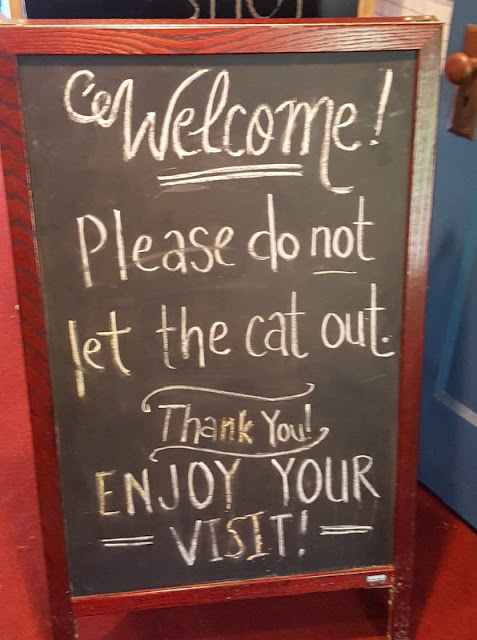 Welcome!
Please do not
let the cat out.
Thank You!
ENJOY YOUR
VISIT!